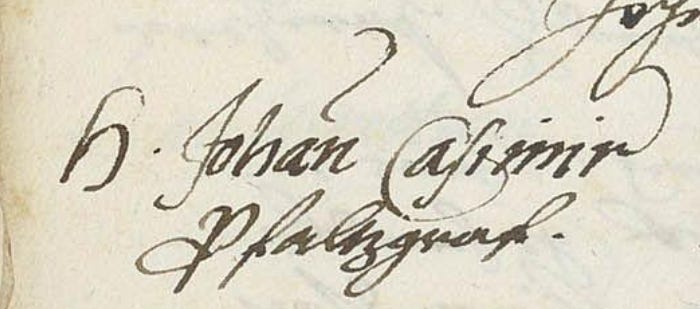 H. Johan̄ Casimir
Pfaltzgraf.